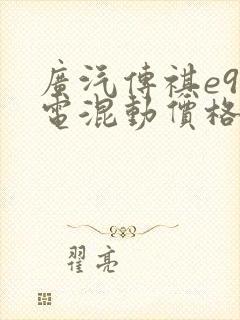 廣汽傳祺e9
電混動價格
翟亮